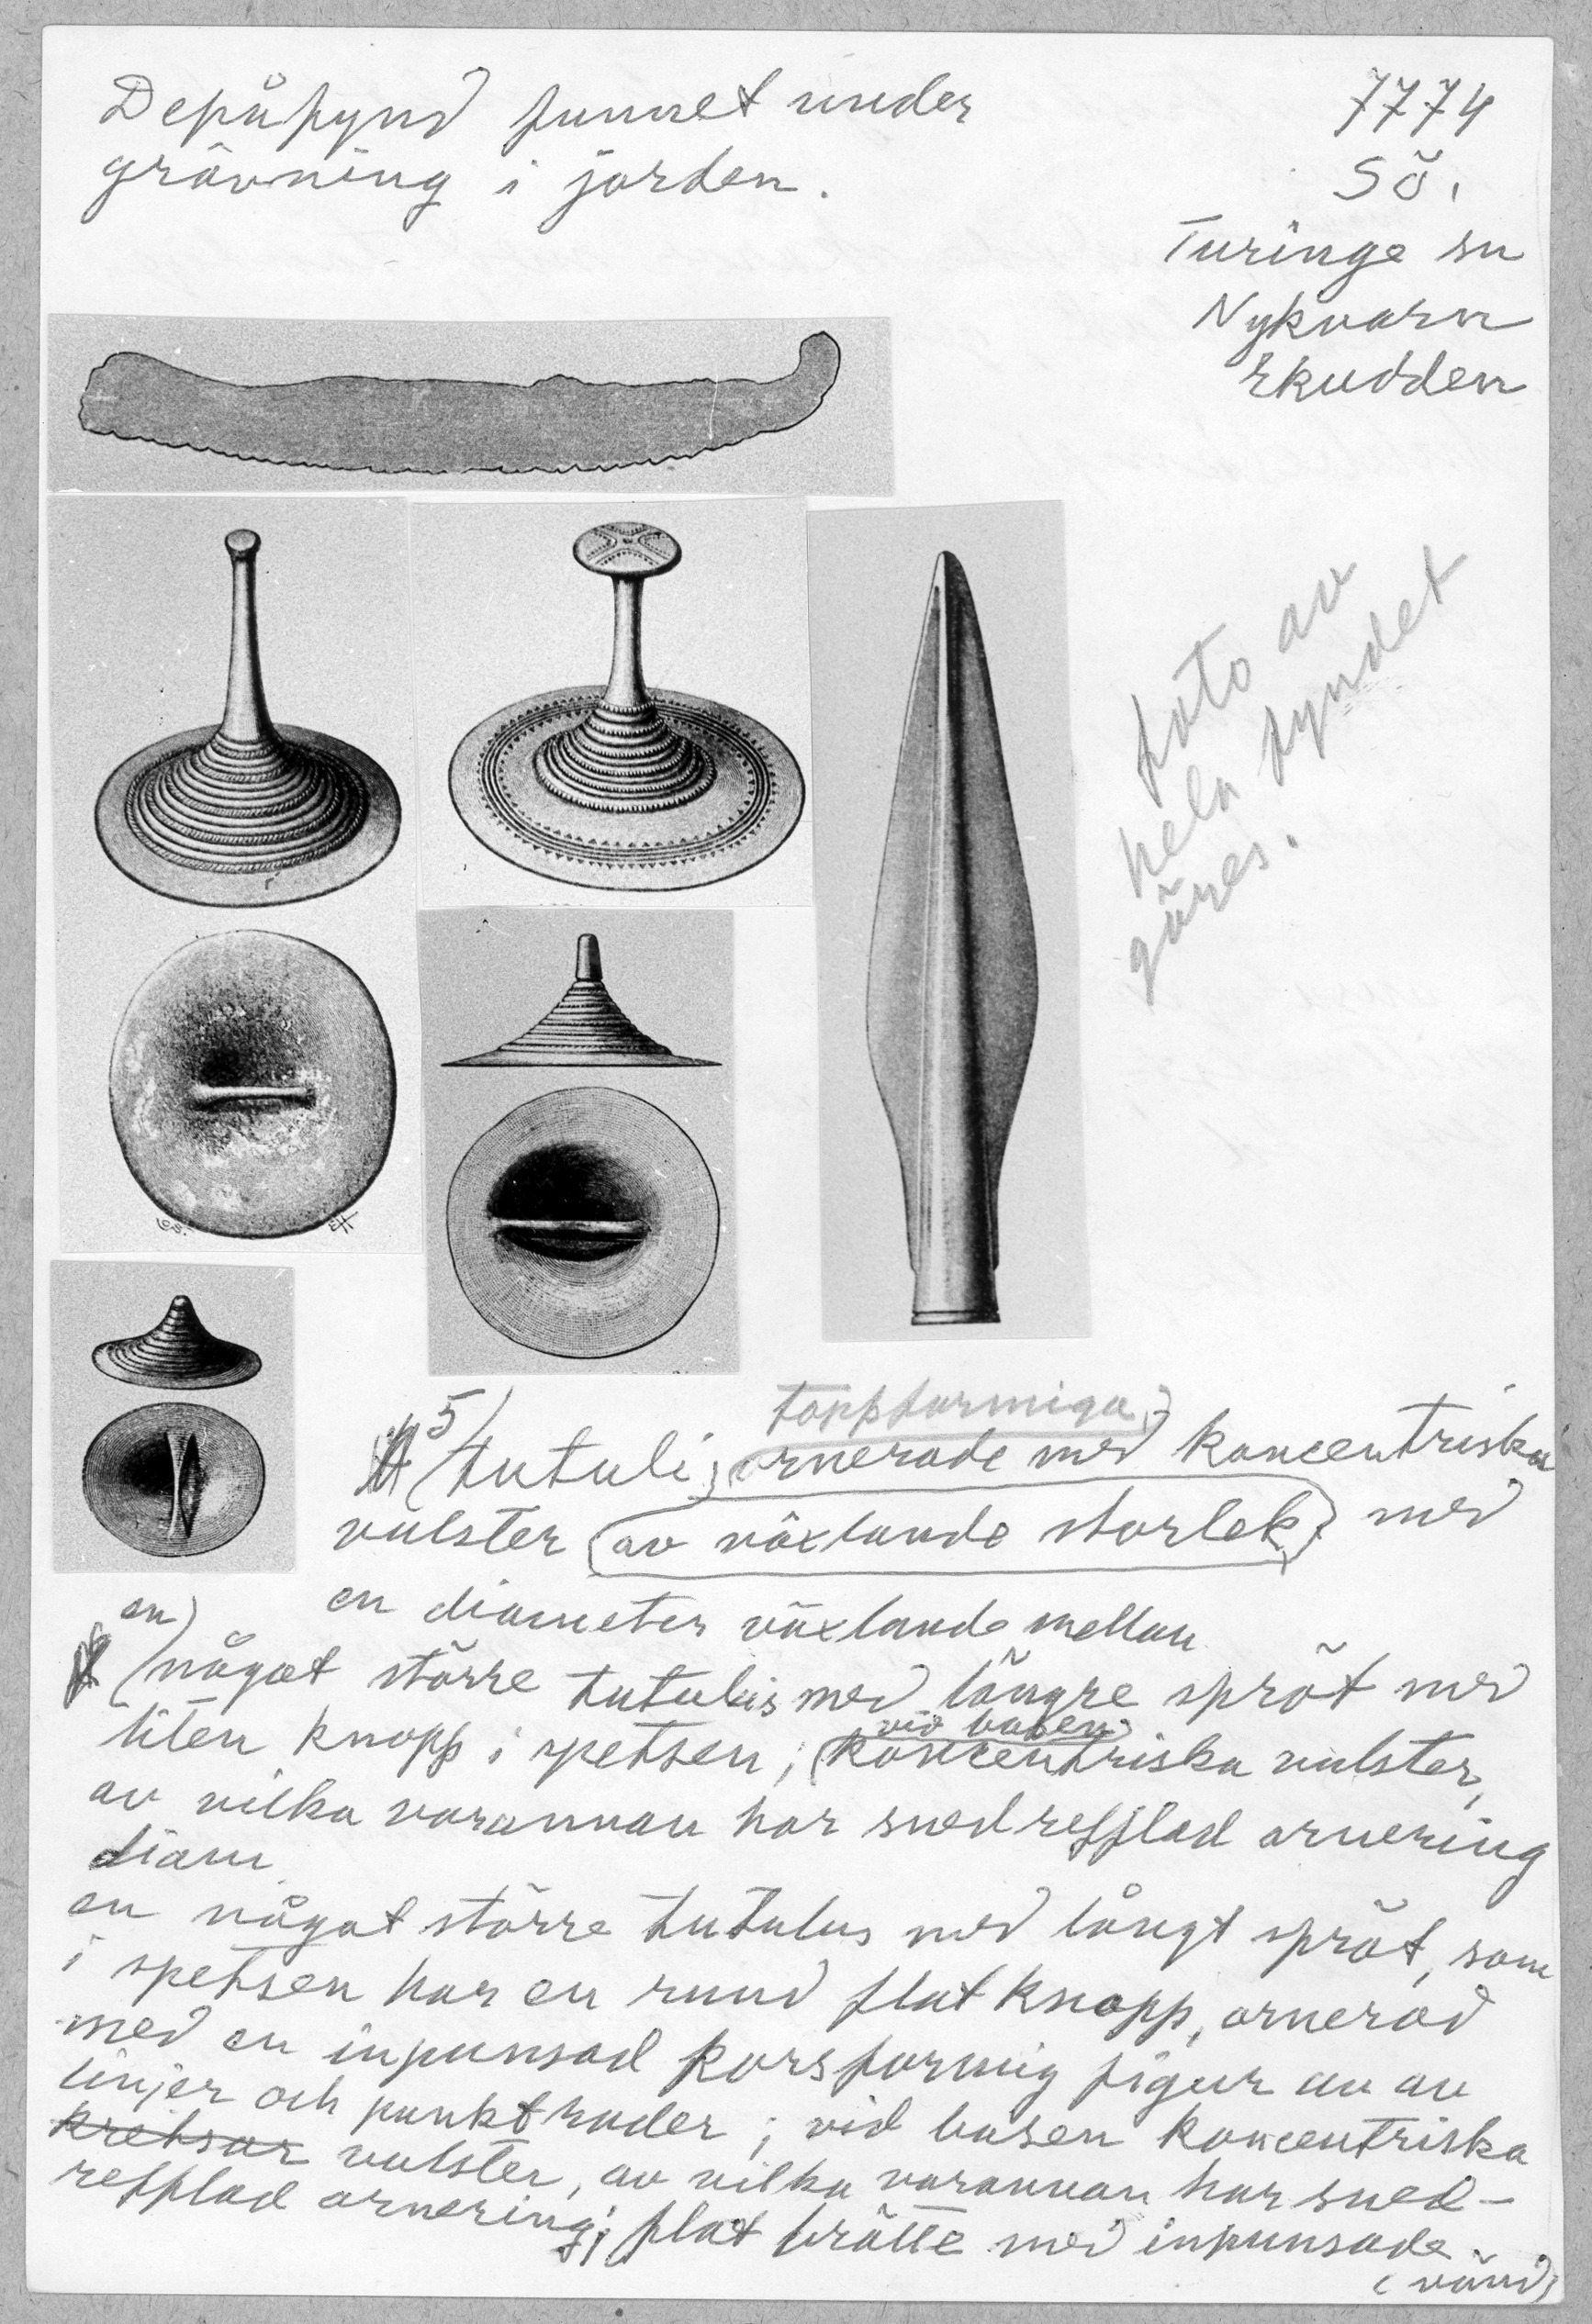 Depåfynd funnet under
grävning i jorden.
7774
Sö.
Turinge sn
Nykvarn
Ekudden
foto av
hela fyndet
göres.
EH
5) toppformiga
tutuli, ornerade med koncentriska
vulster (av växlande storlek) med
en diameter växlande mellan
en)
något större tutulus med längre spröt med
vid basen
liten knopp i spetsen; koncentriska vulster,
av vilka varannan har snedrefflad ornering
diam
en något större tutulus med långt spröt, som
i spetsen har en rund flat knopp, ornerad
med en inpunsad korsformig figur av av
linjer och punktrader; vid basen koncentriska
kretsar vulster, av vilka varannan har sned-
refflad ornering; flat brätte med inpunsade
(vänd)